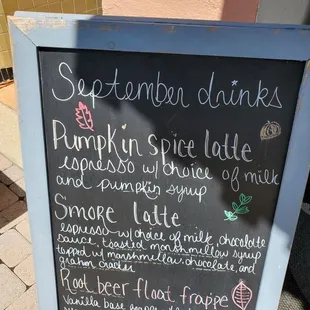 September drinks
Pumpkin spice latte
espresso w/ choice of milk
and pumpkin syrup
Smore latte
espresso w/ choice of milk, chocolate
sauce, toasted marshmallow syrup
topped w/ marshmallow, chocolate, and
graham cracker
Root beer float frappe
Vanilla base